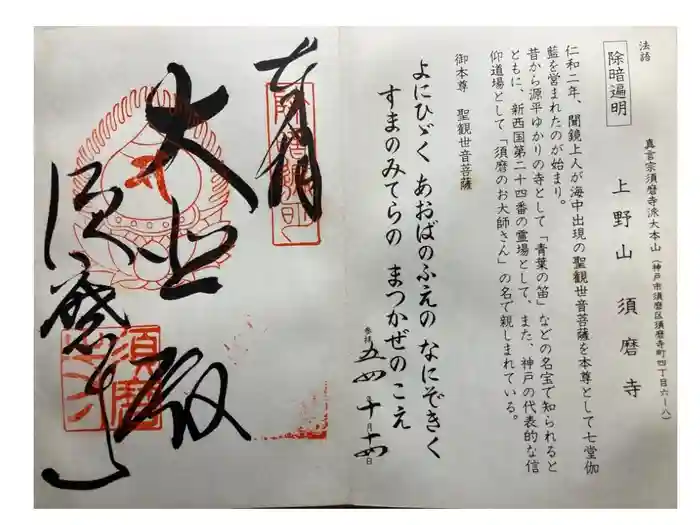 法語
除暗遍明
真言宗須磨寺派大本山(神戸市須磨区須磨寺町四丁目六ー八)
上野山 須磨寺
仁和二年、聞鏡上人が海中出現の聖観世音菩薩を本尊として七堂伽
藍を営まれたのが始まり。
昔から源平ゆかりの寺として「青葉の笛」などの名宝で知られると
ともに、新西国第二十四番の霊場として、また、神戸の代表的な信
仰道場として「須磨のお大師さん」の名で親しまれている。
御本尊 聖観世音菩薩
よにひゞく あおばのふえの なにぞきく
すまのみてらの まつかぜのこえ
参拝 年十月十四日
奉拝
除暗遍明
大悲殿
須磨寺
須磨